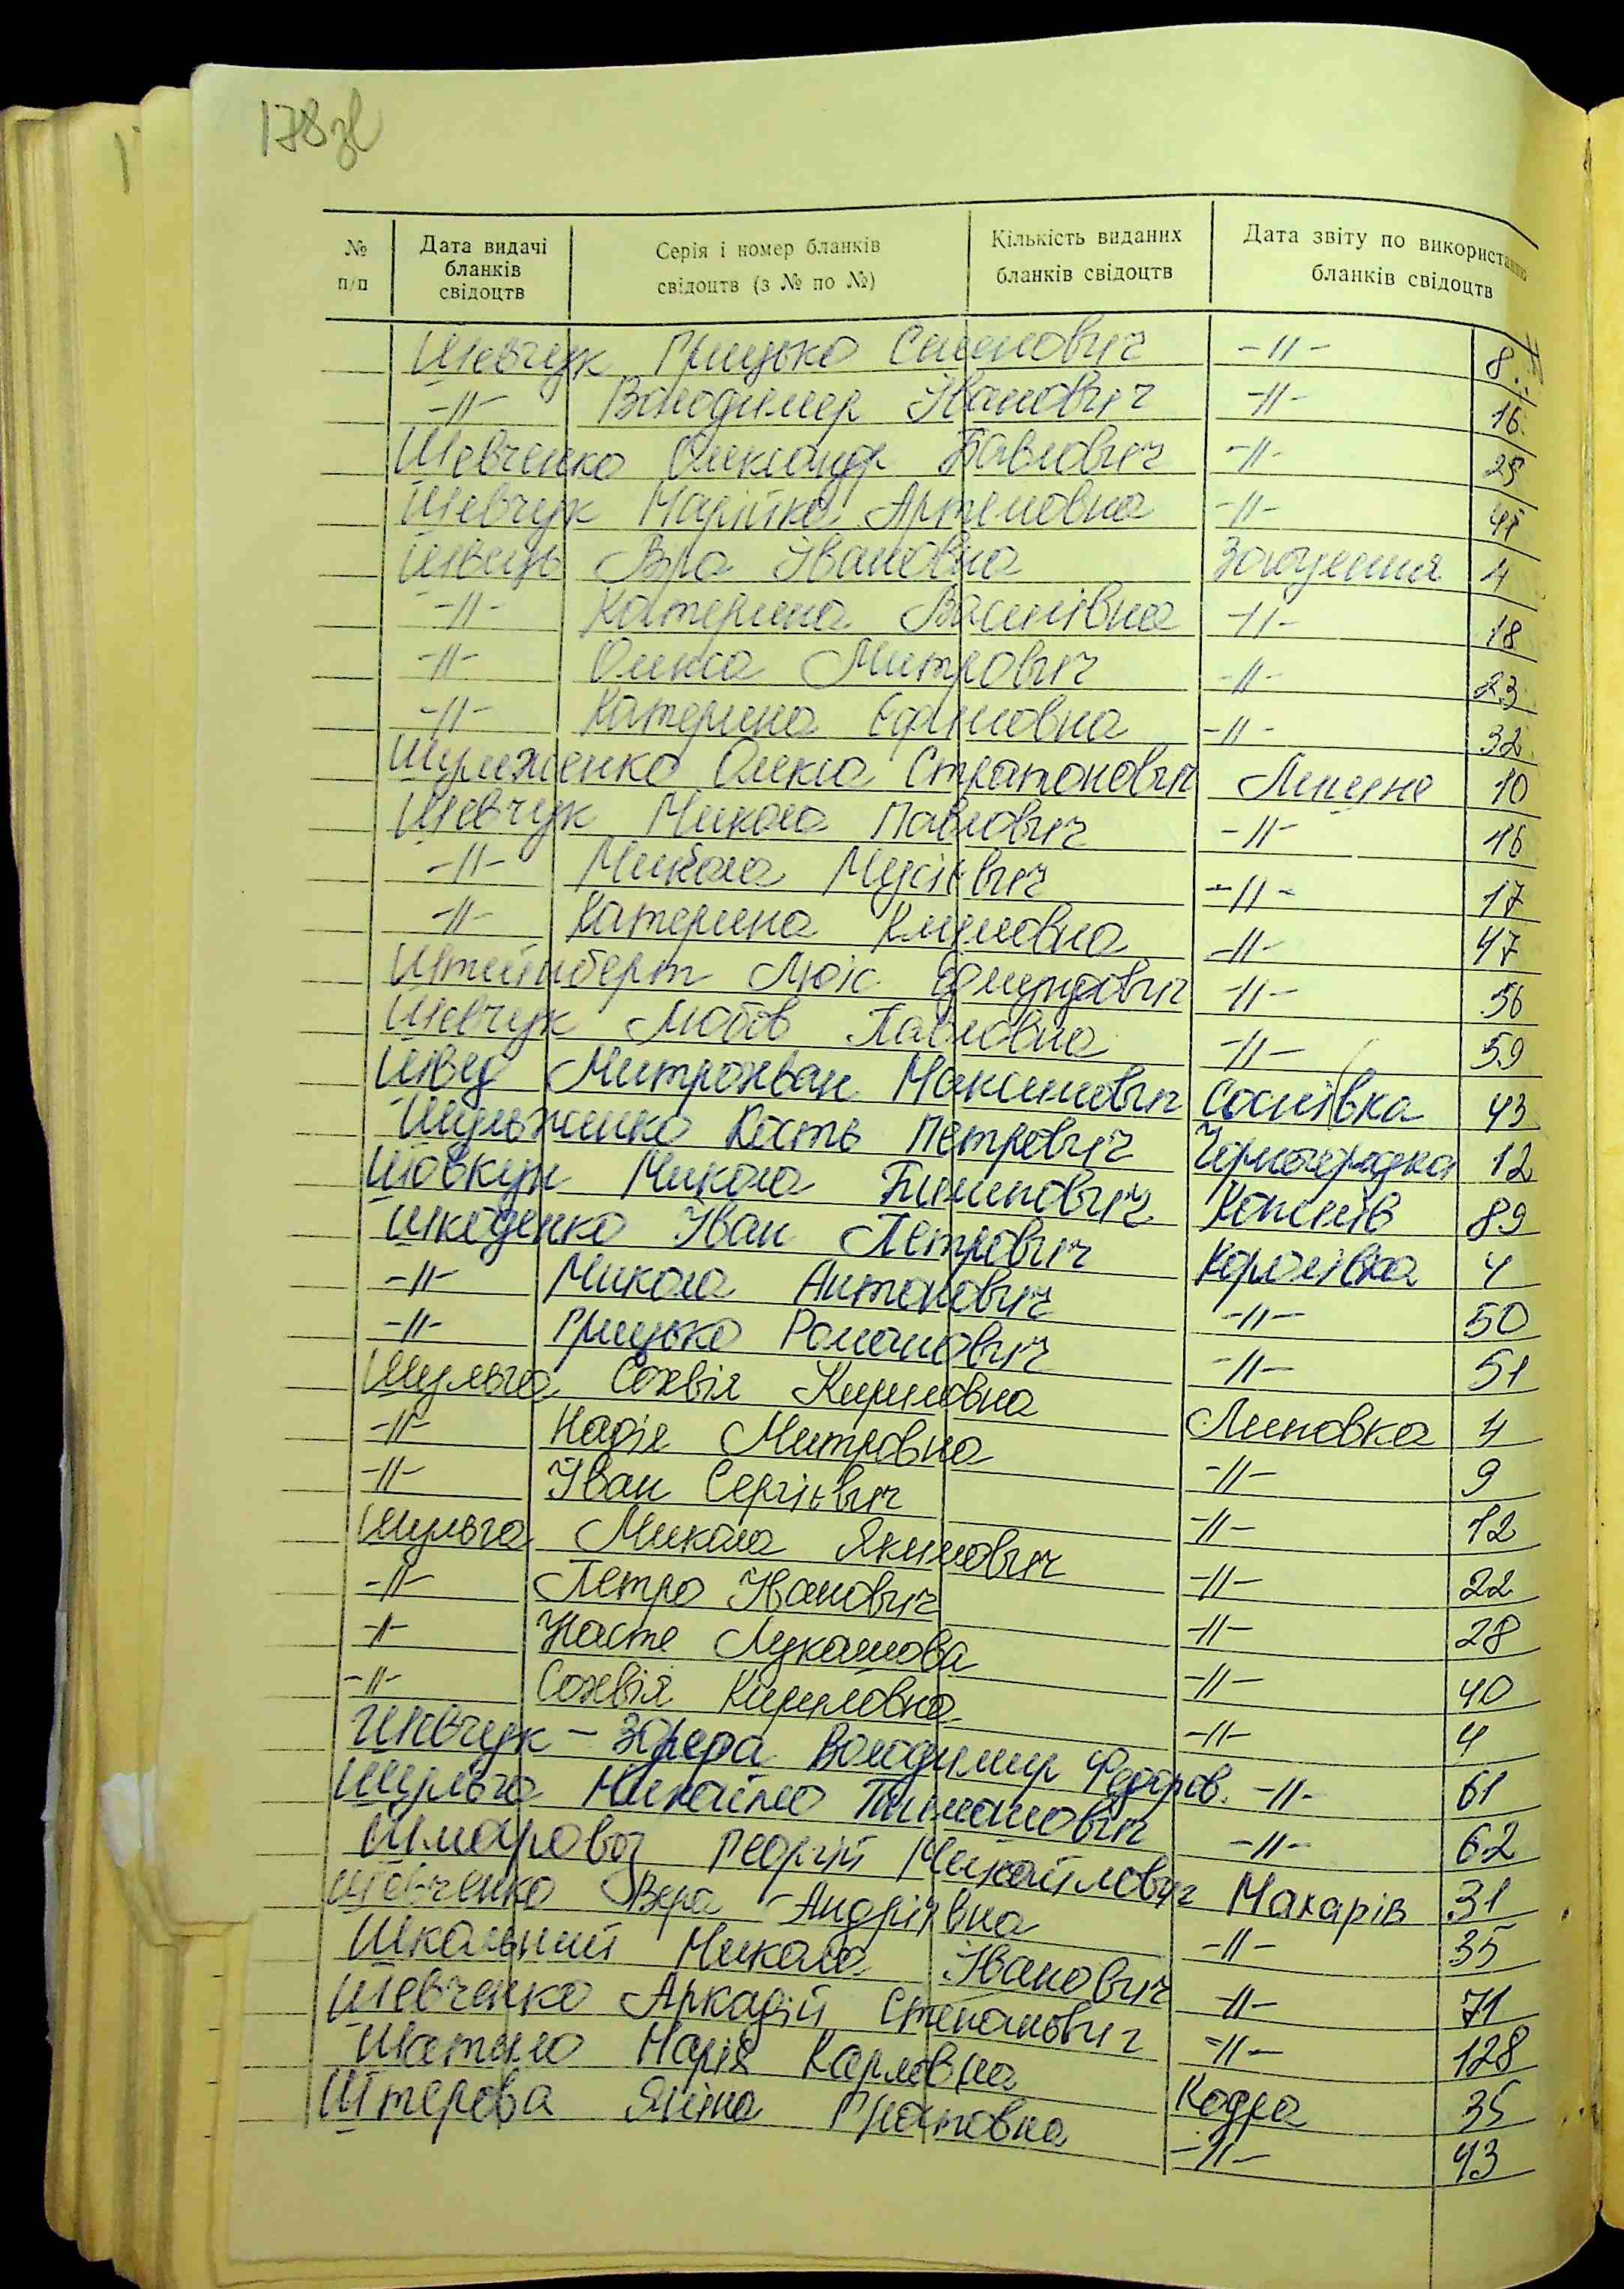 178зв
№ п/п Дата видачі бланків свідоцтв Серія і номер бланків свідоцтв (з № по №) Кількість виданих бланків свідоцтв Дата звіту по використанню бланків свідоцтв
Шевчук Грицько Семенович -//- 8
-//- Володимер Іванович -//- 16
Шевченко Олександр Павлович -//- 25
Шевчук Марійка Артемовна -//- 41
Швець Вра Івановна 4
-//- Катерина Василівна -//- 18
-//- Олекса Митрович -//- 23
-//- Катерина Єфимовна -//- 32
Шулженко Олекса Стратонович 10
Шевчук Микола Павлович -//- 16
-//- Микола Мусієвич -//- 17
-//- Катерина Климовна -//- 47
Штейнберт Люіс Едмундович -//- 56
Шевчук Любов Павловна -//- 59
Швед Митрохван Максимович Соснівка 43
Шульженко Кость Петрович Чорногородка 12
Шовкун Микола Пилипович Копилів 89
Шкоденко Іван Петрович Королівка 4
-//- Микола Антонович -//- 50
-//- Грицько Романович -//- 51
Шульга Сохвія Кириловна Липовка 4
-//- Надія Митровна -//- 9
-//- Іван Сергієвич -//- 12
Шульга Микола Якимович -//- 22
-//- Петро Іванович -//- 28
-//- Настя Лукашова -//- 40
-//- Сохвія Кириловна -//- 4
Шевчук - Володимир Федоров. -//- 61
Шульга Михайло Тимошович -//- 62
Шмаровоз Георгій Михайлович Макарів 31
Шевченко Вера Андріявна -//- 35
Шкальний Микола Іванович -//- 71
Шевченко Аркадій Степанович -//- 128
Шатило Марія Карловна Кодра 35
Штерова Яніна Гнатовна -//- 43